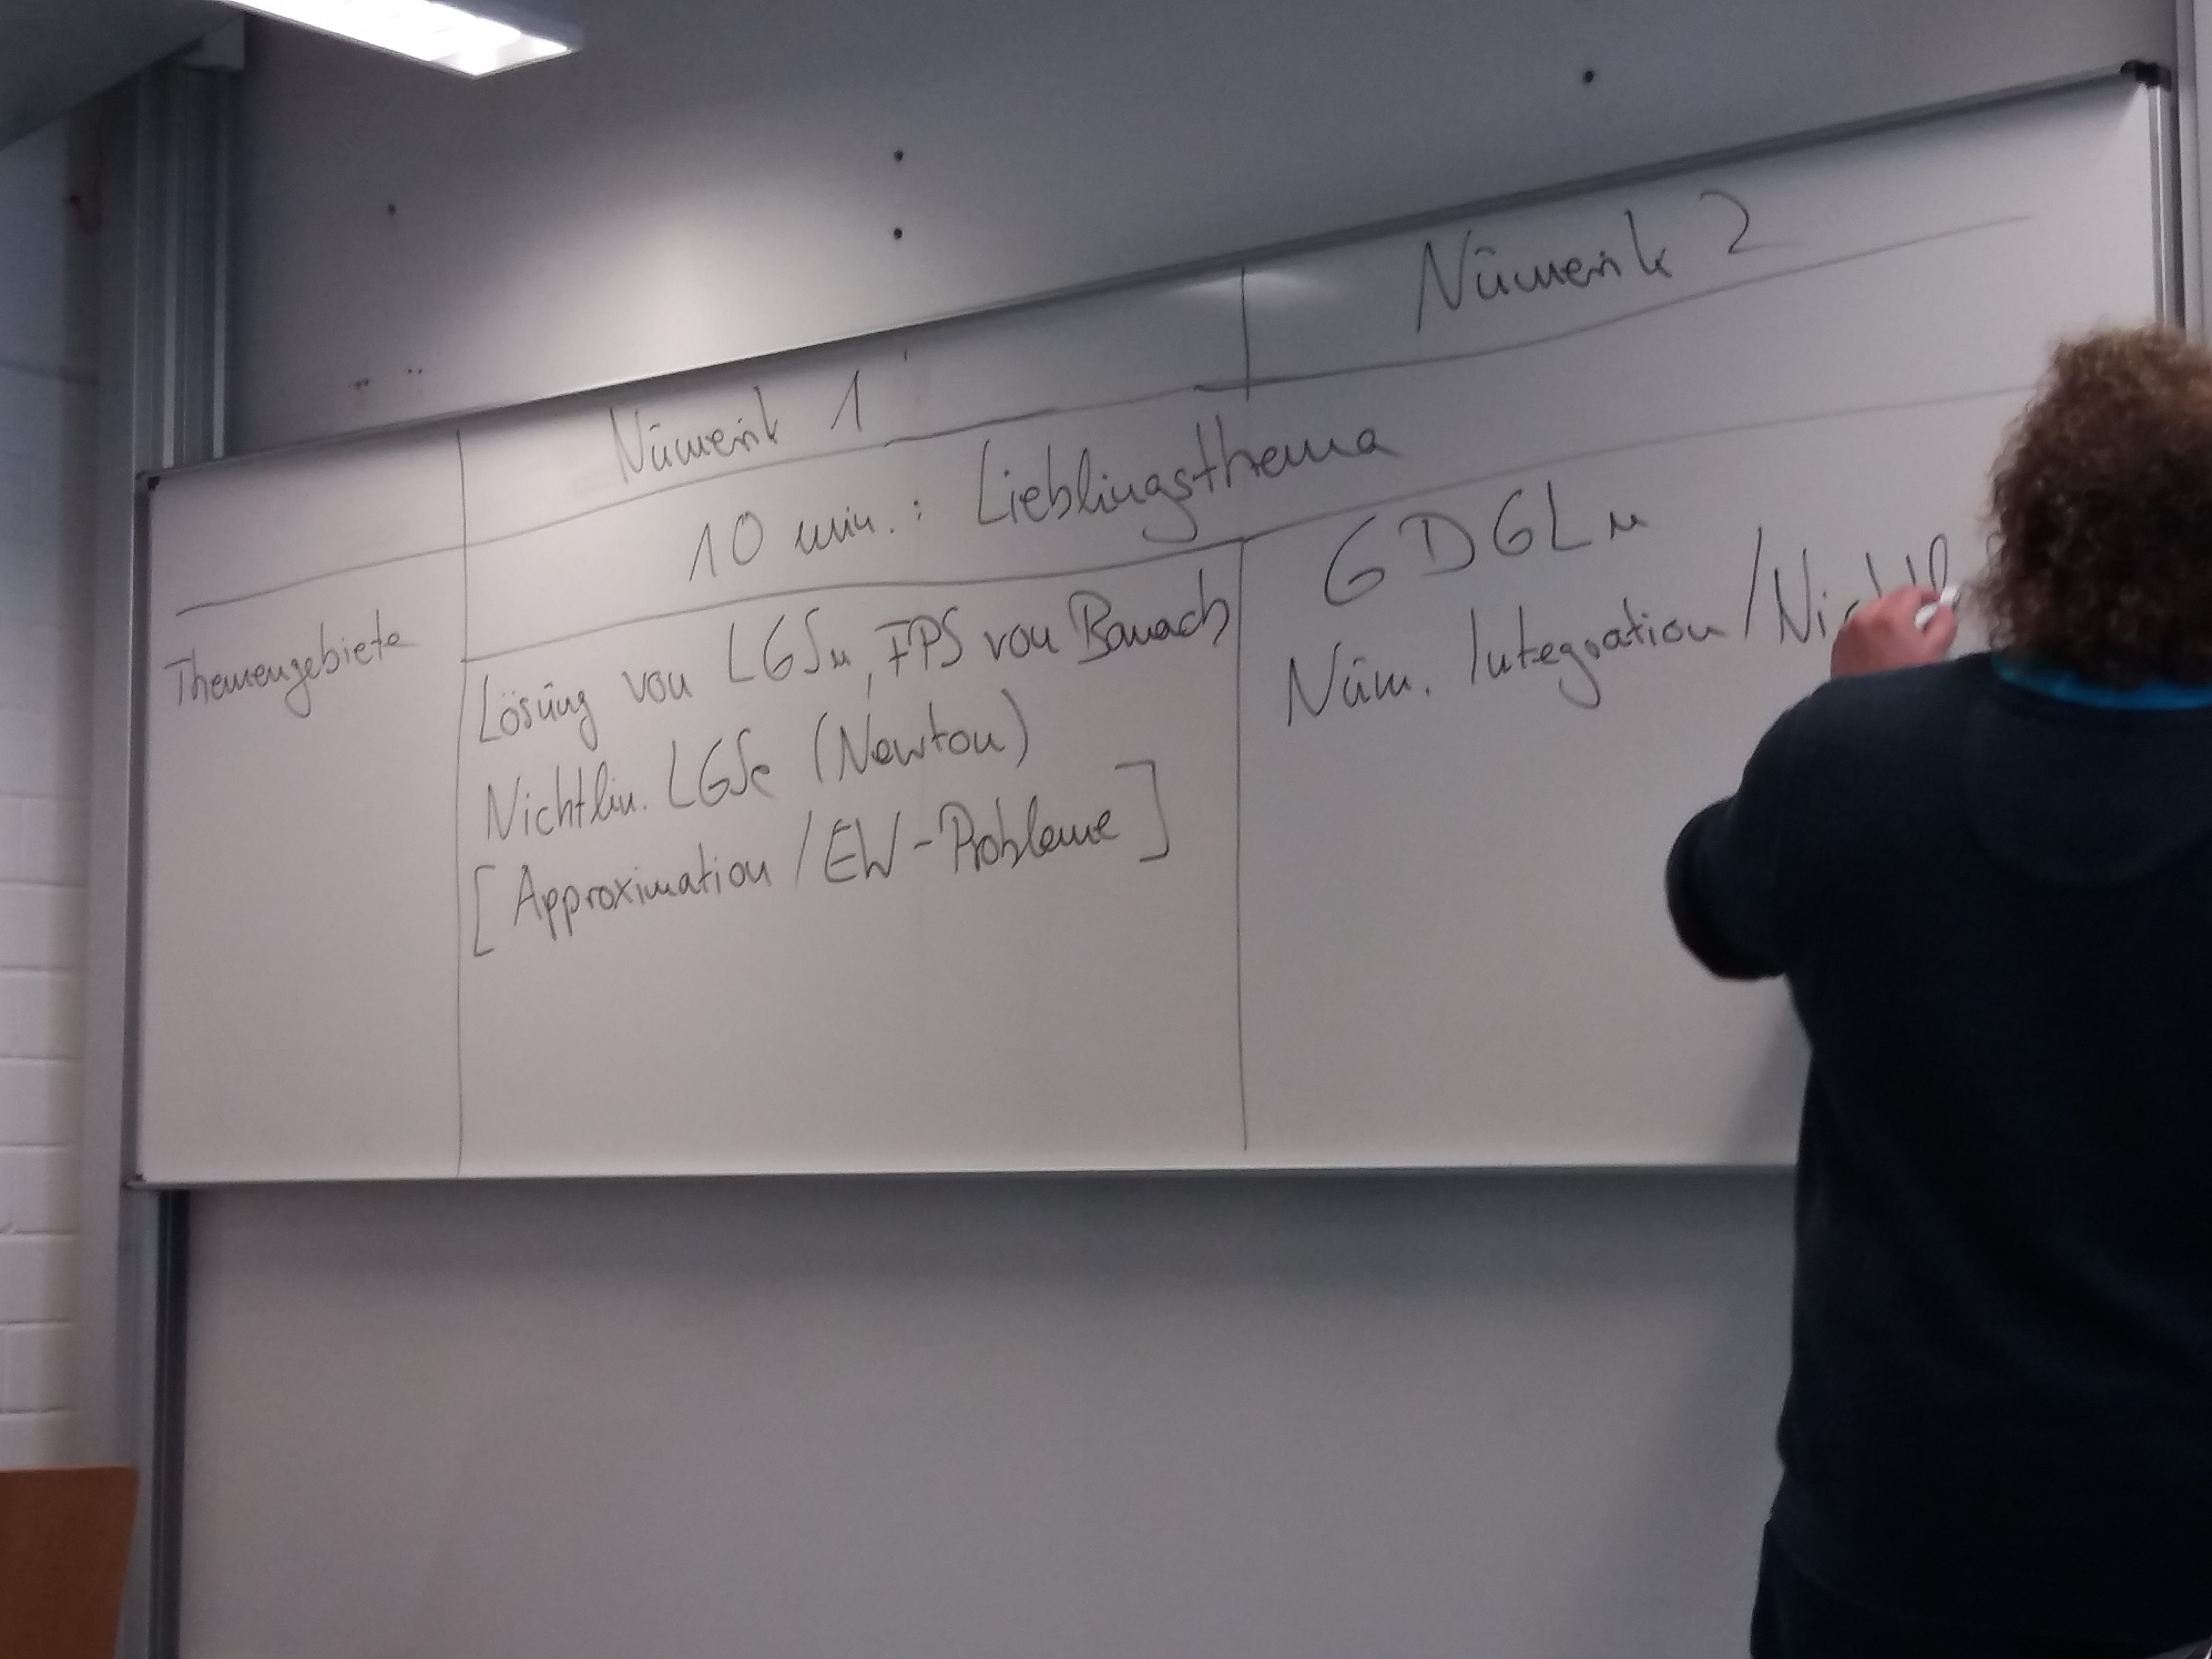 Numerik 1
Numerik 2
10 min.: Lieblingsthema
Themengebiete
Lösung von LGSn, FPS von Banach
Nichtlin. LGSe (Newton)
[Approximation / EW-Probleme]
GDGLn
Num. Integration /